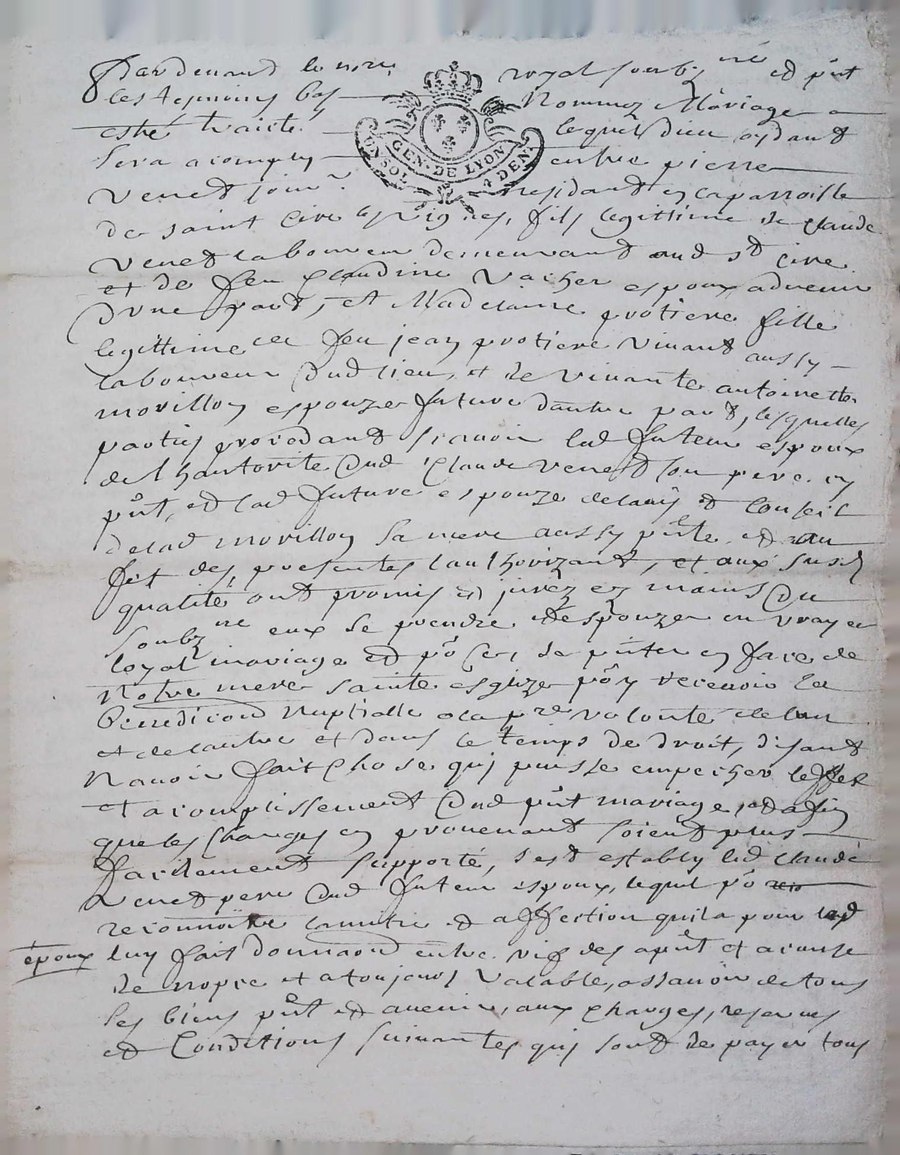 Pardevant le nore royal soubz né et pnt
les tesmoins bas nommez Mariage a
esté traité lequel dieu aydant
sera acomply entre pierre
UN SOL GEN. DE LYON 4 DEN.
Venet join? residant en la parroisse
de saint Cire les vignes, fils legittime de Claude
Venet laboureur demeurant aud st cire
et de feu Claudine Vacher espoux advenir
d'une part, et Madelaine protiere fille
legittime de feu jean protiere vivant aussy
laboureur dud lieu, et de vivante antoinette
morillon espouze future dautre part, lesquelles
parties procedant scavoir led futeur espoux
de lhautorite dud Claude Venet son pere en
pnt, et lad future espouze de lavis et conseil
de lad morillon sa mere aussy pnte et au
fet des presentes lauthorizant, et aux susd
qualite ont promis et jurez ez mains du
soubz né eux se prendre et espouzer en vray et
loyal mariage et po ce, se pnter en face de
notre mere sainte esglize poy recevoir la
benedicon nuptialle a la pre volonte de lun
et de lautre et dans le temps de droit, disant
navoir fait chose qui puisse empecher leffet
et acomplissement dud pnt mariage, et afin
que les charges en provenant soient plus
facilement supporté, sest estably led Claude
Venet pere dud futeur espoux, lequel po
reconnoitre lamitie et affection quil a pour led
époux
luy fait donnaon entre vif des apnt et a cause
de nopce et a toujours valable, assavoir de tous
ses biens pnt et avenir, aux charges, reserves
et Conditions suivantes qui sont de payer tous